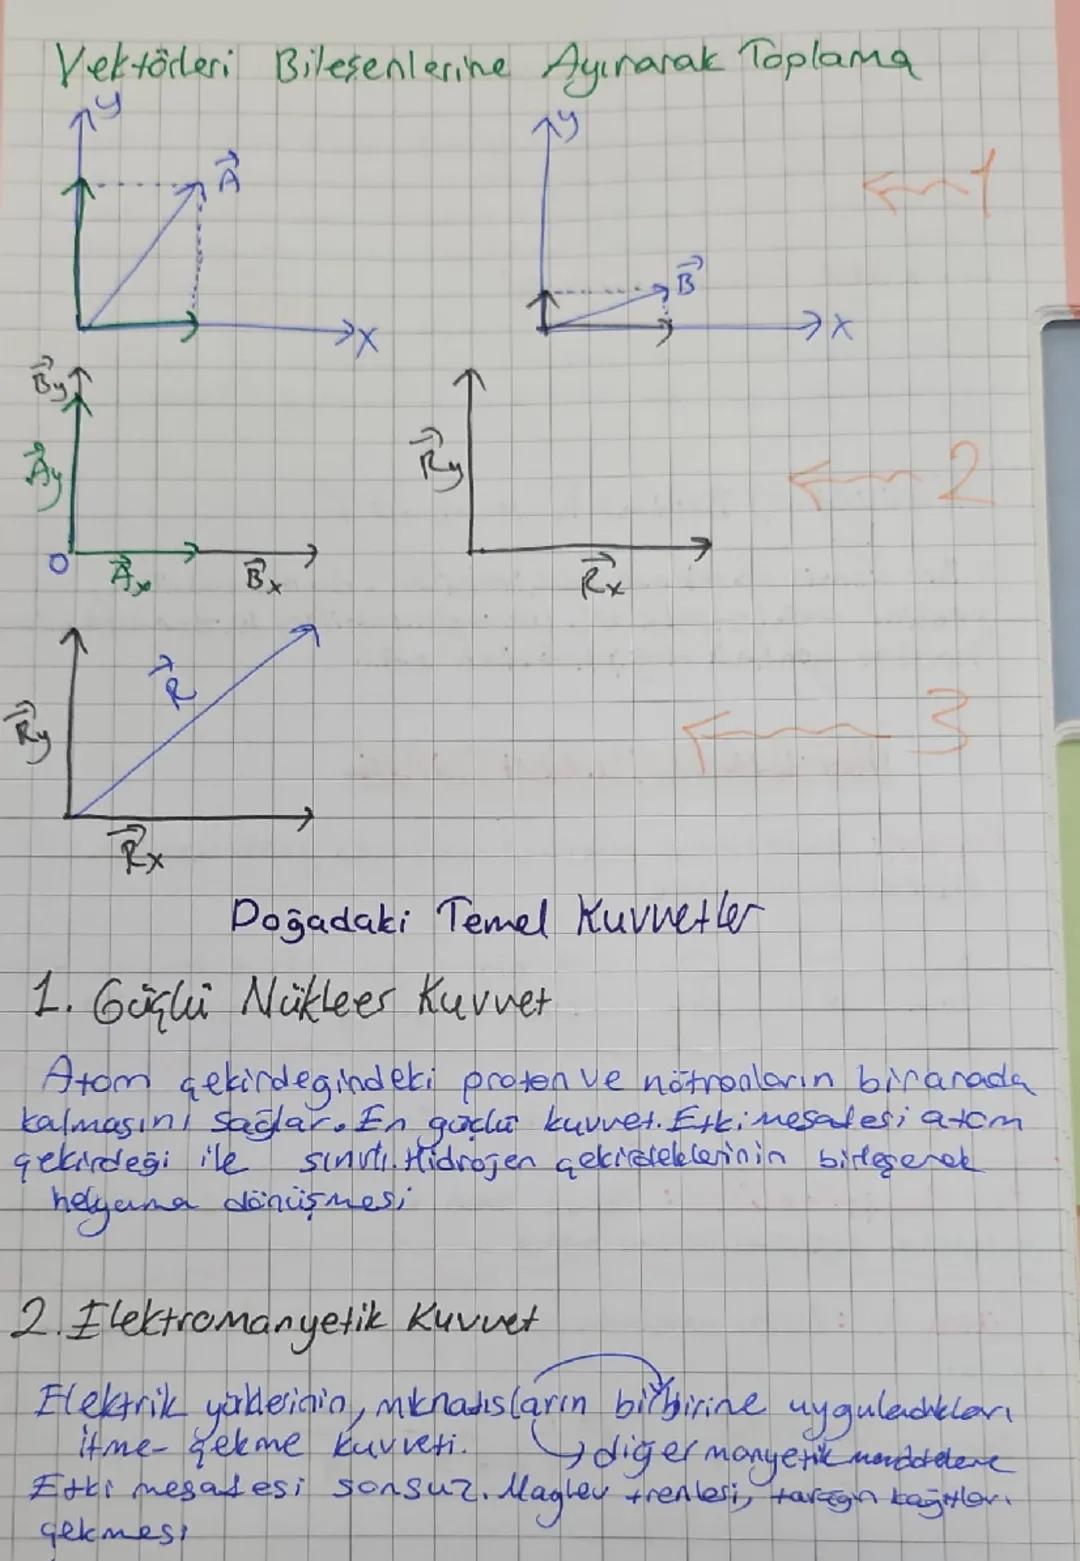 Vektörleri Bileşenlerine Ayırarak Toplama
y y
A 1
B
x x
By
Ay Ry 2
O Ax Bx Rx
R
Ry 3
Rx
Doğadaki Temel Kuvvetler
1. Güçlü Nükleer Kuvvet
Atom çekirdeğindeki proton ve nötronların birarada
kalmasını sağlar. En güçlü kuvvet. Etki mesafesi atom
çekirdeği ile sınırlı. Hidrojen çekirdeklerinin birleşerek
helyuma dönüşmesi
2. Elektromanyetik Kuvvet
Elektrik yüklerinin, mıknatısların birbirine uyguladıkları
itme-çekme kuvveti. diğer manyetik maddelere
Etki mesafesi sonsuz. Maglev trenleri, tarağın kağıtları
çekmesi